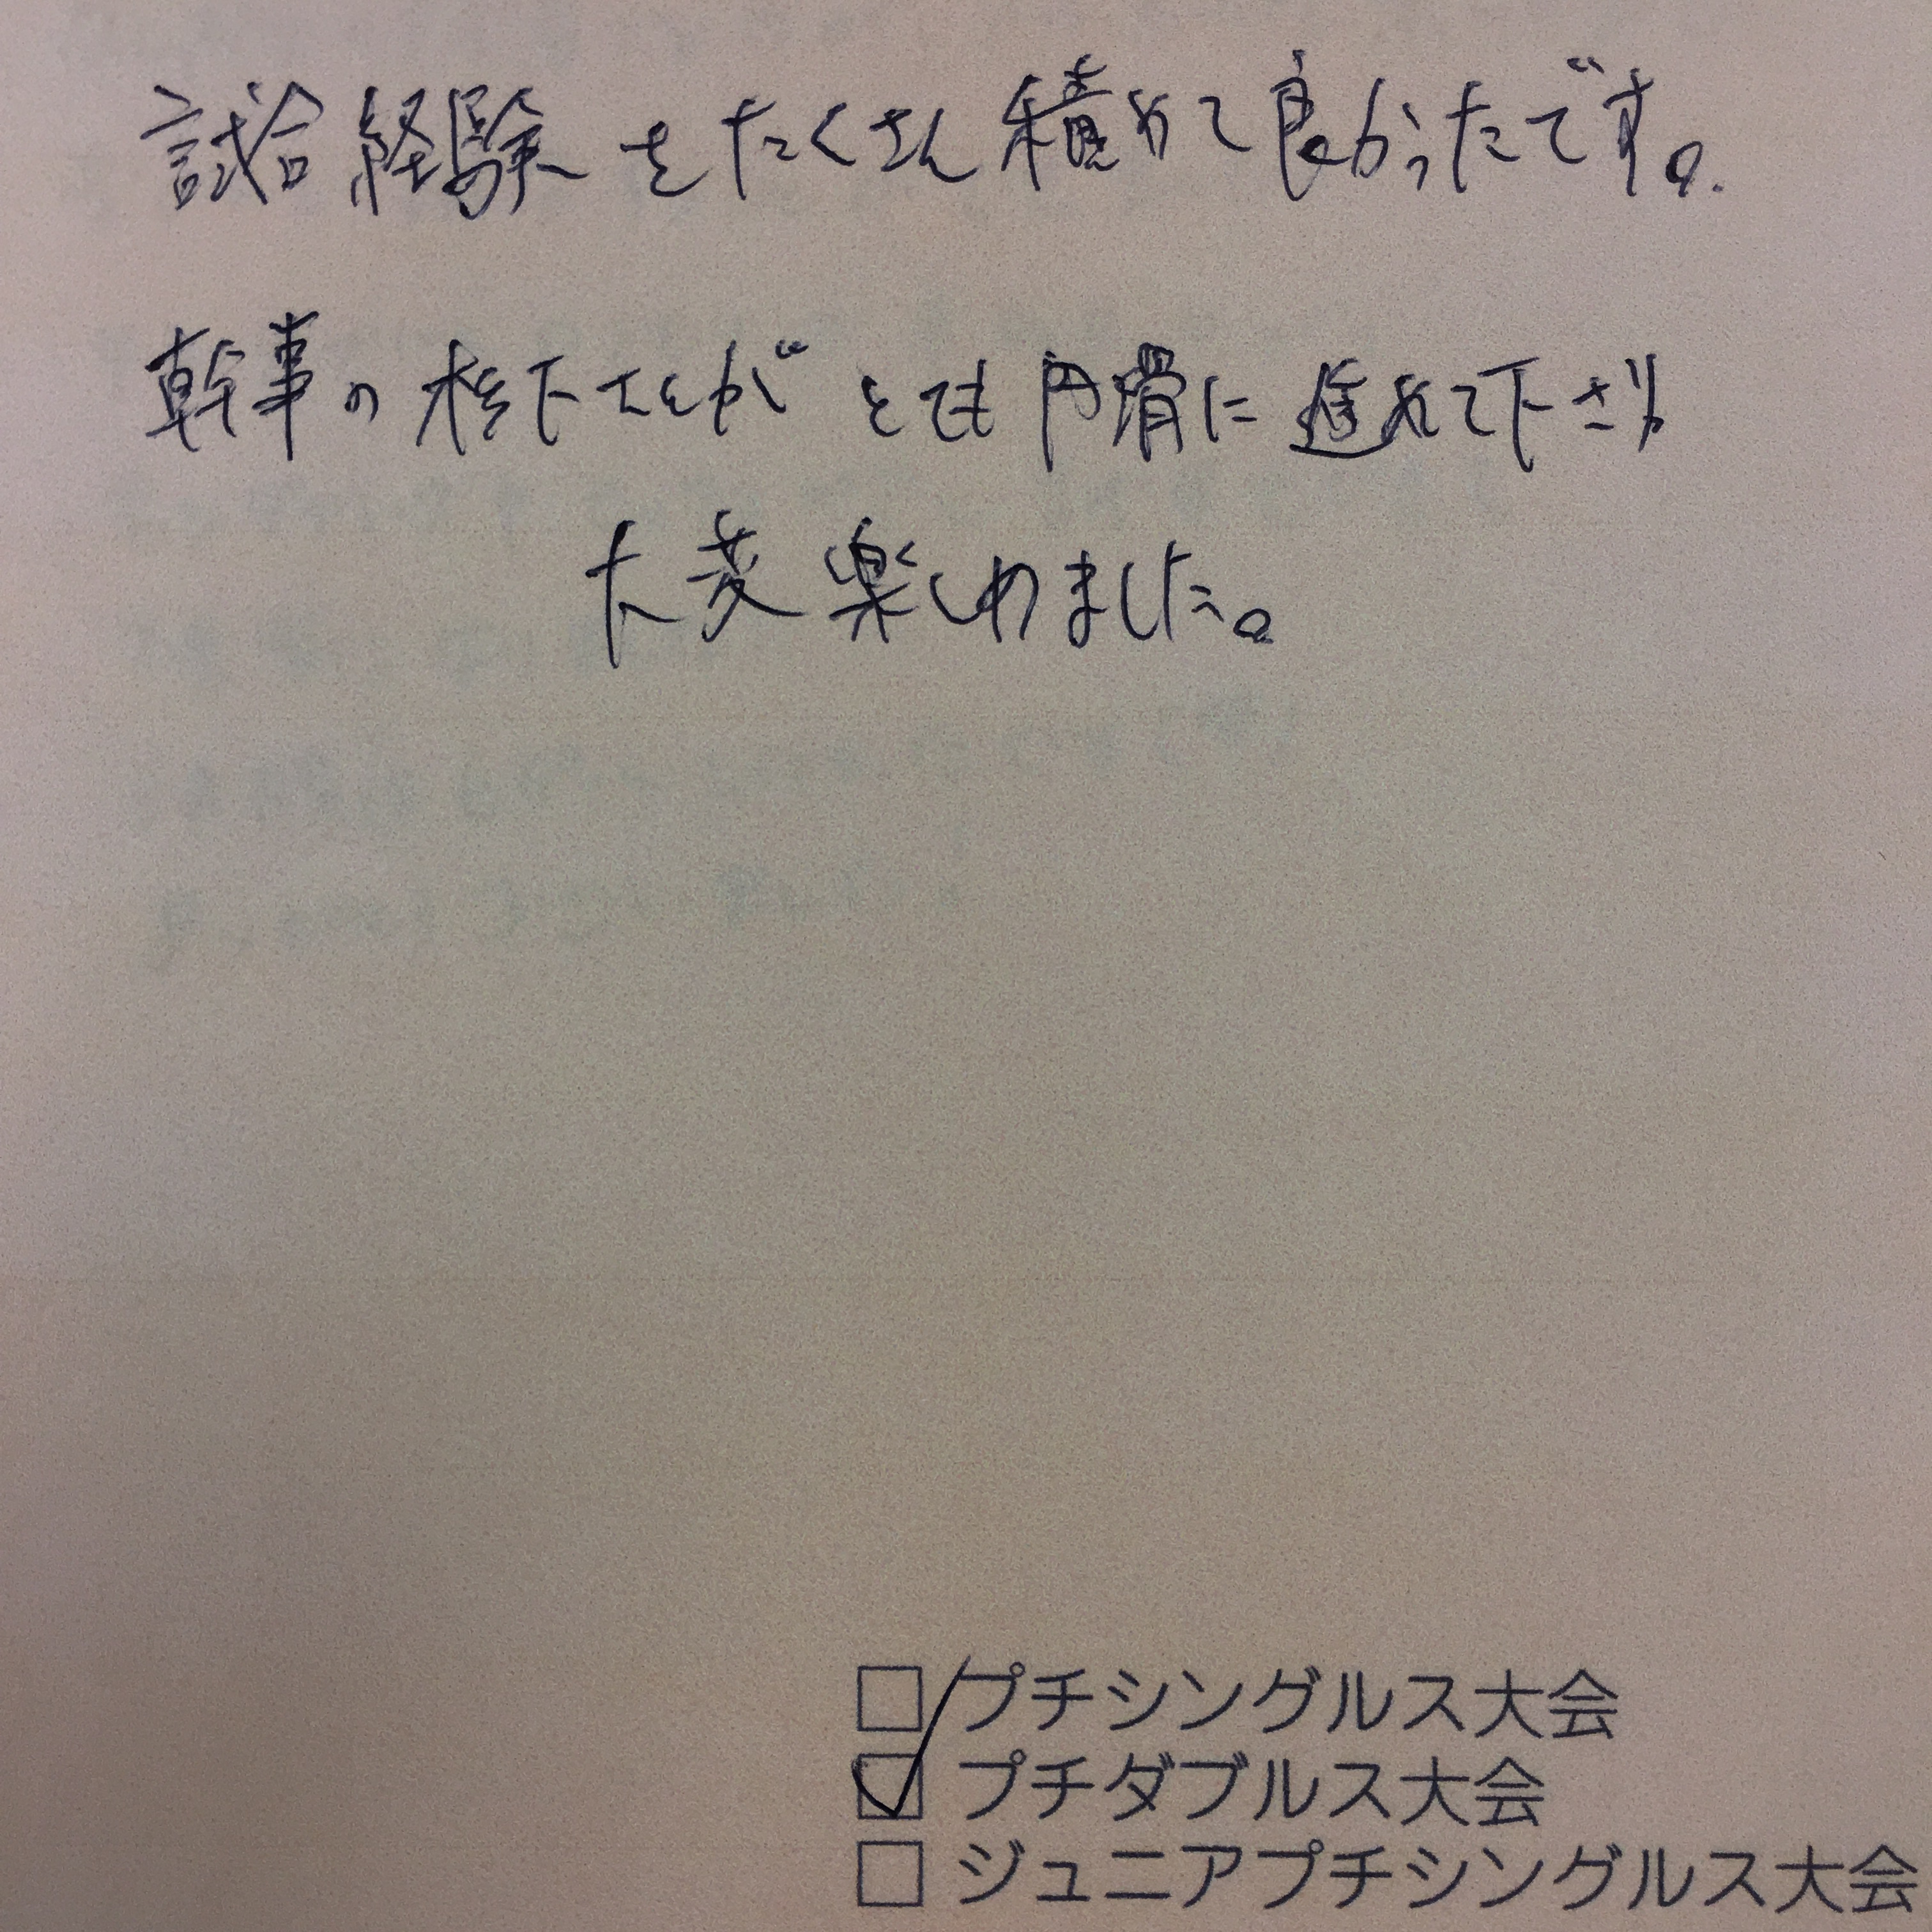 試合経験をたくさん積めて良かったです。
幹事の松下さんがとても円滑に進めて下さり
大変楽しめました。
□ プチシングルス大会
☑ プチダブルス大会
□ ジュニアプチシングルス大会